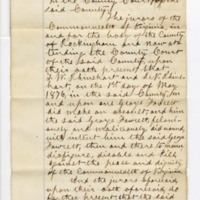 In the County Court of the
said County:
The jurors of the
Commonwealth of Virginia in
and for the body of the County
of Rockingham and now at-
tending the County Court
of the said County upon
their oath present, that
J. W. Rhinehart and
on the 1st day of May
1876, in the said County, in
and upon one George Fawcett
did make an assault, and him
the said George Fawcett, feloni-
ously and maliciously did
with intent him the said George
Fawcett, then and there to maim,
disfigure, disable and kill
against the peace and dignity
of the Commonwealth of Virginia
And the jurors
upon their oath aforesaid, do
further present, that the said